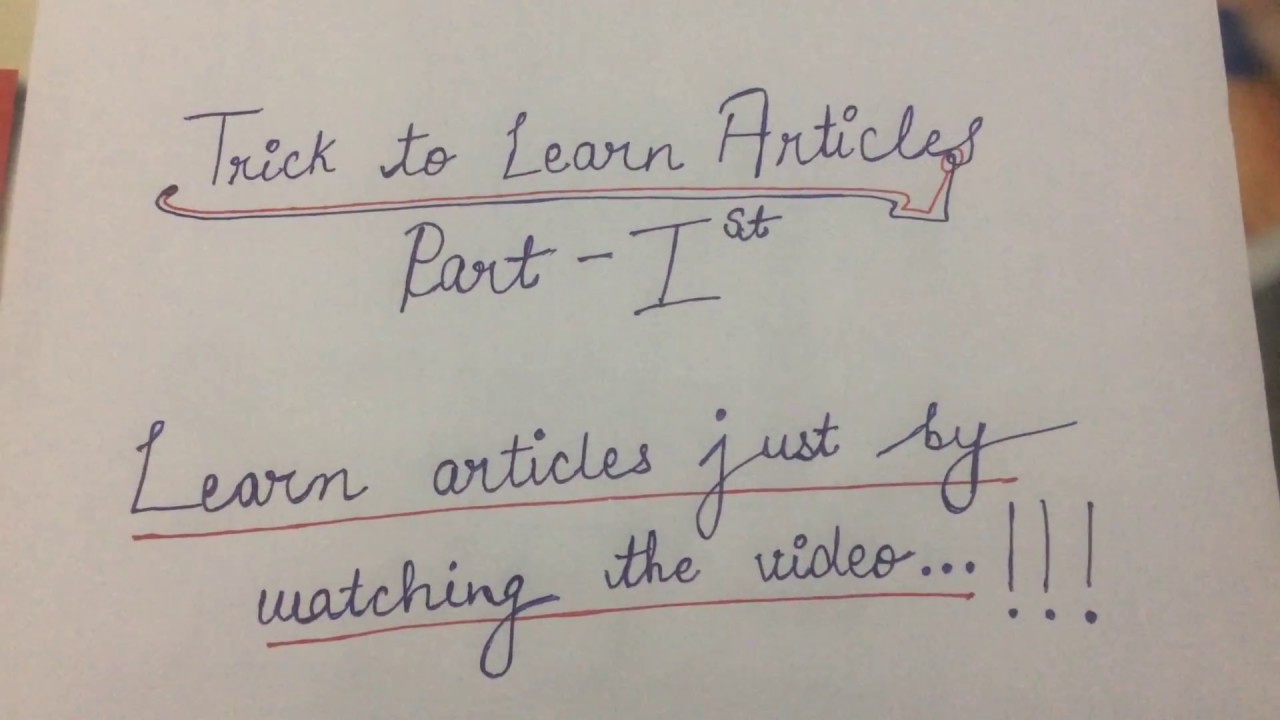 Trick to Learn Articles
Part - I st
Learn articles just by
watching the video...!!!